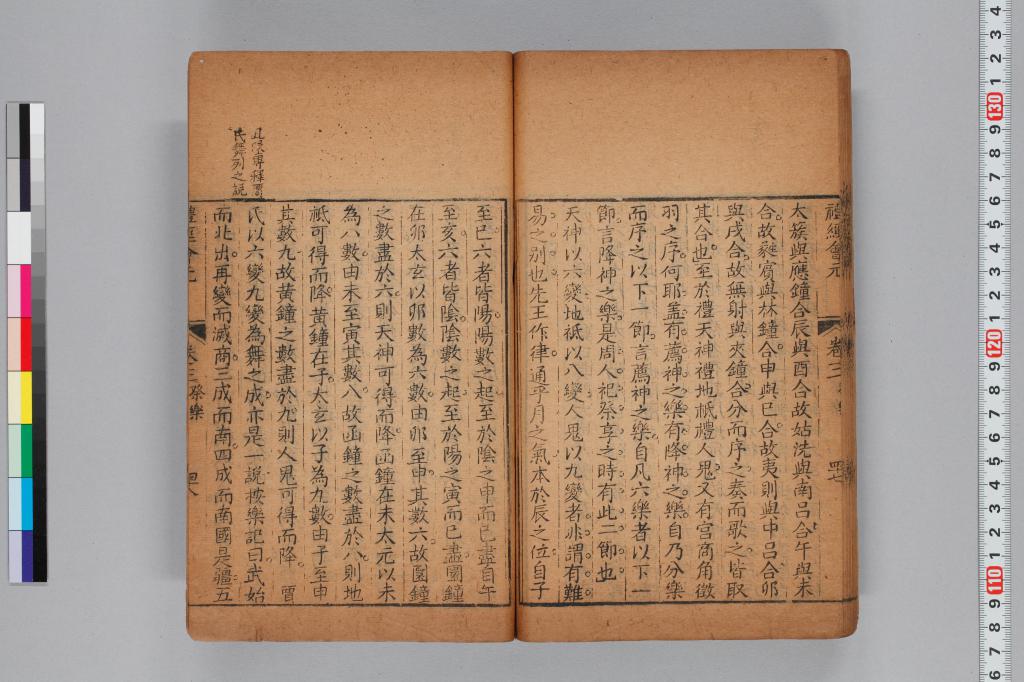 禮經會元 卷三 四七
太簇與應鐘合辰與酉合故姑洗與南呂合午與未
合故蕤賓與林鐘合申與巳合故夷則與中呂合卯
與戌合故無射與夾鐘合分而序之奏而歌之皆取
其合也至於禮天神禮地祗禮人鬼又有宮商角徵
羽之序何耶蓋有薦神之樂有降神之樂自乃分樂
而序之以下一節言薦神之樂自凡六樂者以下一
節言降神之樂是周人祀祭享之時有此二節也
天神以六變地祗以八變人鬼以九變者非謂有難
易之別也先王作律通乎月之氣本於辰之位自子
至巳六者皆陽陽數之起至於陰之申而已盡自午
至亥六者皆陰陰數之起至於陽之寅而已盡圜鐘
在卯太玄以卯數為六數由卯至申其數六故圜鐘
之數盡於六則天神可得而降函鐘在未太元以未
為八數由未至寅其數八故函鐘之數盡於八則地
祗可得而降黃鐘在子太玄以子為九數由子至申
其數九故黃鐘之數盡於九則人鬼可得而降 賈
氏以六變九變為舞之成亦是一說按樂記曰武始
而北出再變而滅商三成而南四成而南國是疆五
禮經會元 卷三 祭樂 四八
民舞列之說